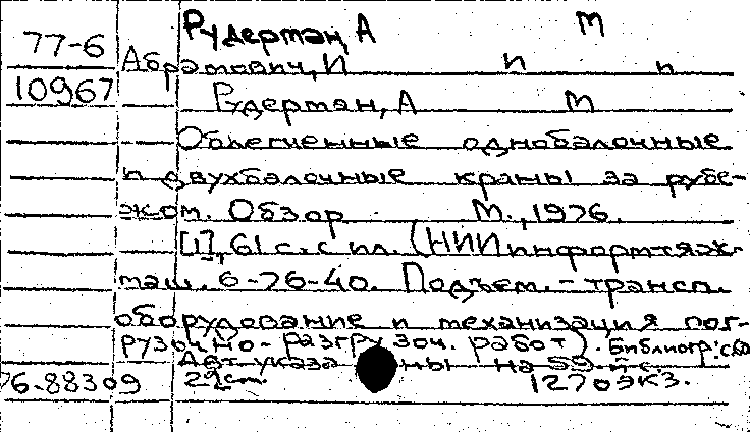 Рудерман, А М
77-6
Абрамович, И И и
10967
Рудерман, А М
Облегченные однобалочные
и двухбалочные краны за рубе-
жом. Обзор М., 1976.
[1], 61 с. с ил. (НИИинформтяж-
маш. 6-76-40. Подъем.-трансп.
оборудование и механизация пог-
рузочно-разгрузоч. работ). Библиогр:
Авт. указа ны на
76.88309 29см. 1270экз.